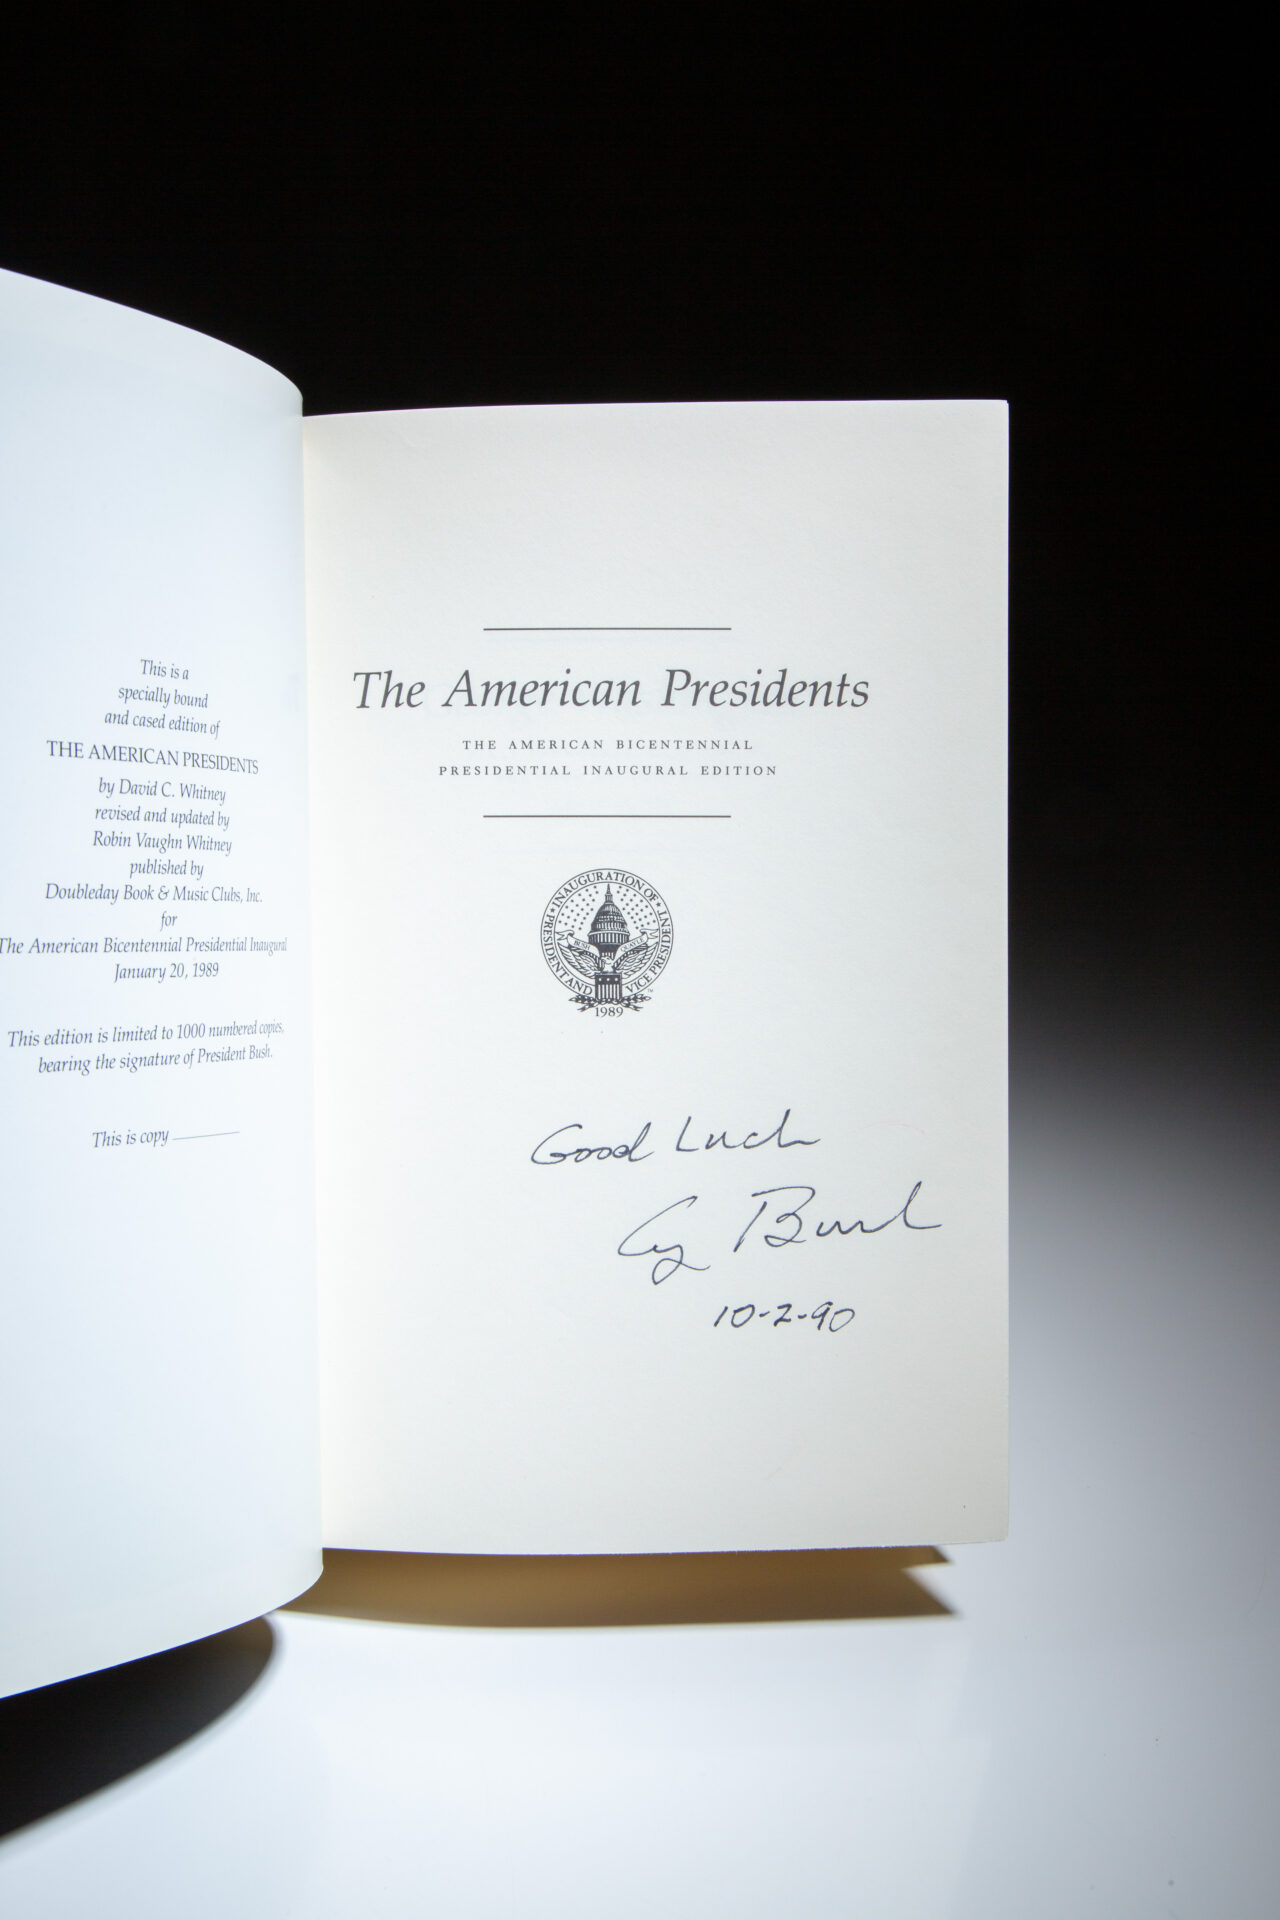 This is a
specially bound
and cased edition of
THE AMERICAN PRESIDENTS
by David C. Whitney
revised and updated by
Robin Vaughn Whitney
published by
Doubleday Book & Music Clubs, Inc.
for
The American Bicentennial Presidential Inaugural
January 20, 1989
This edition is limited to 1000 numbered copies,
bearing the signature of President Bush.
This is copy
The American Presidents
THE AMERICAN BICENTENNIAL
PRESIDENTIAL INAUGURAL EDITION
★ INAUGURATION OF ★
PRESIDENT AND VICE PRESIDENT
BUSH QUAYLE
™
1989
Good Luck
G Bush
10-2-90